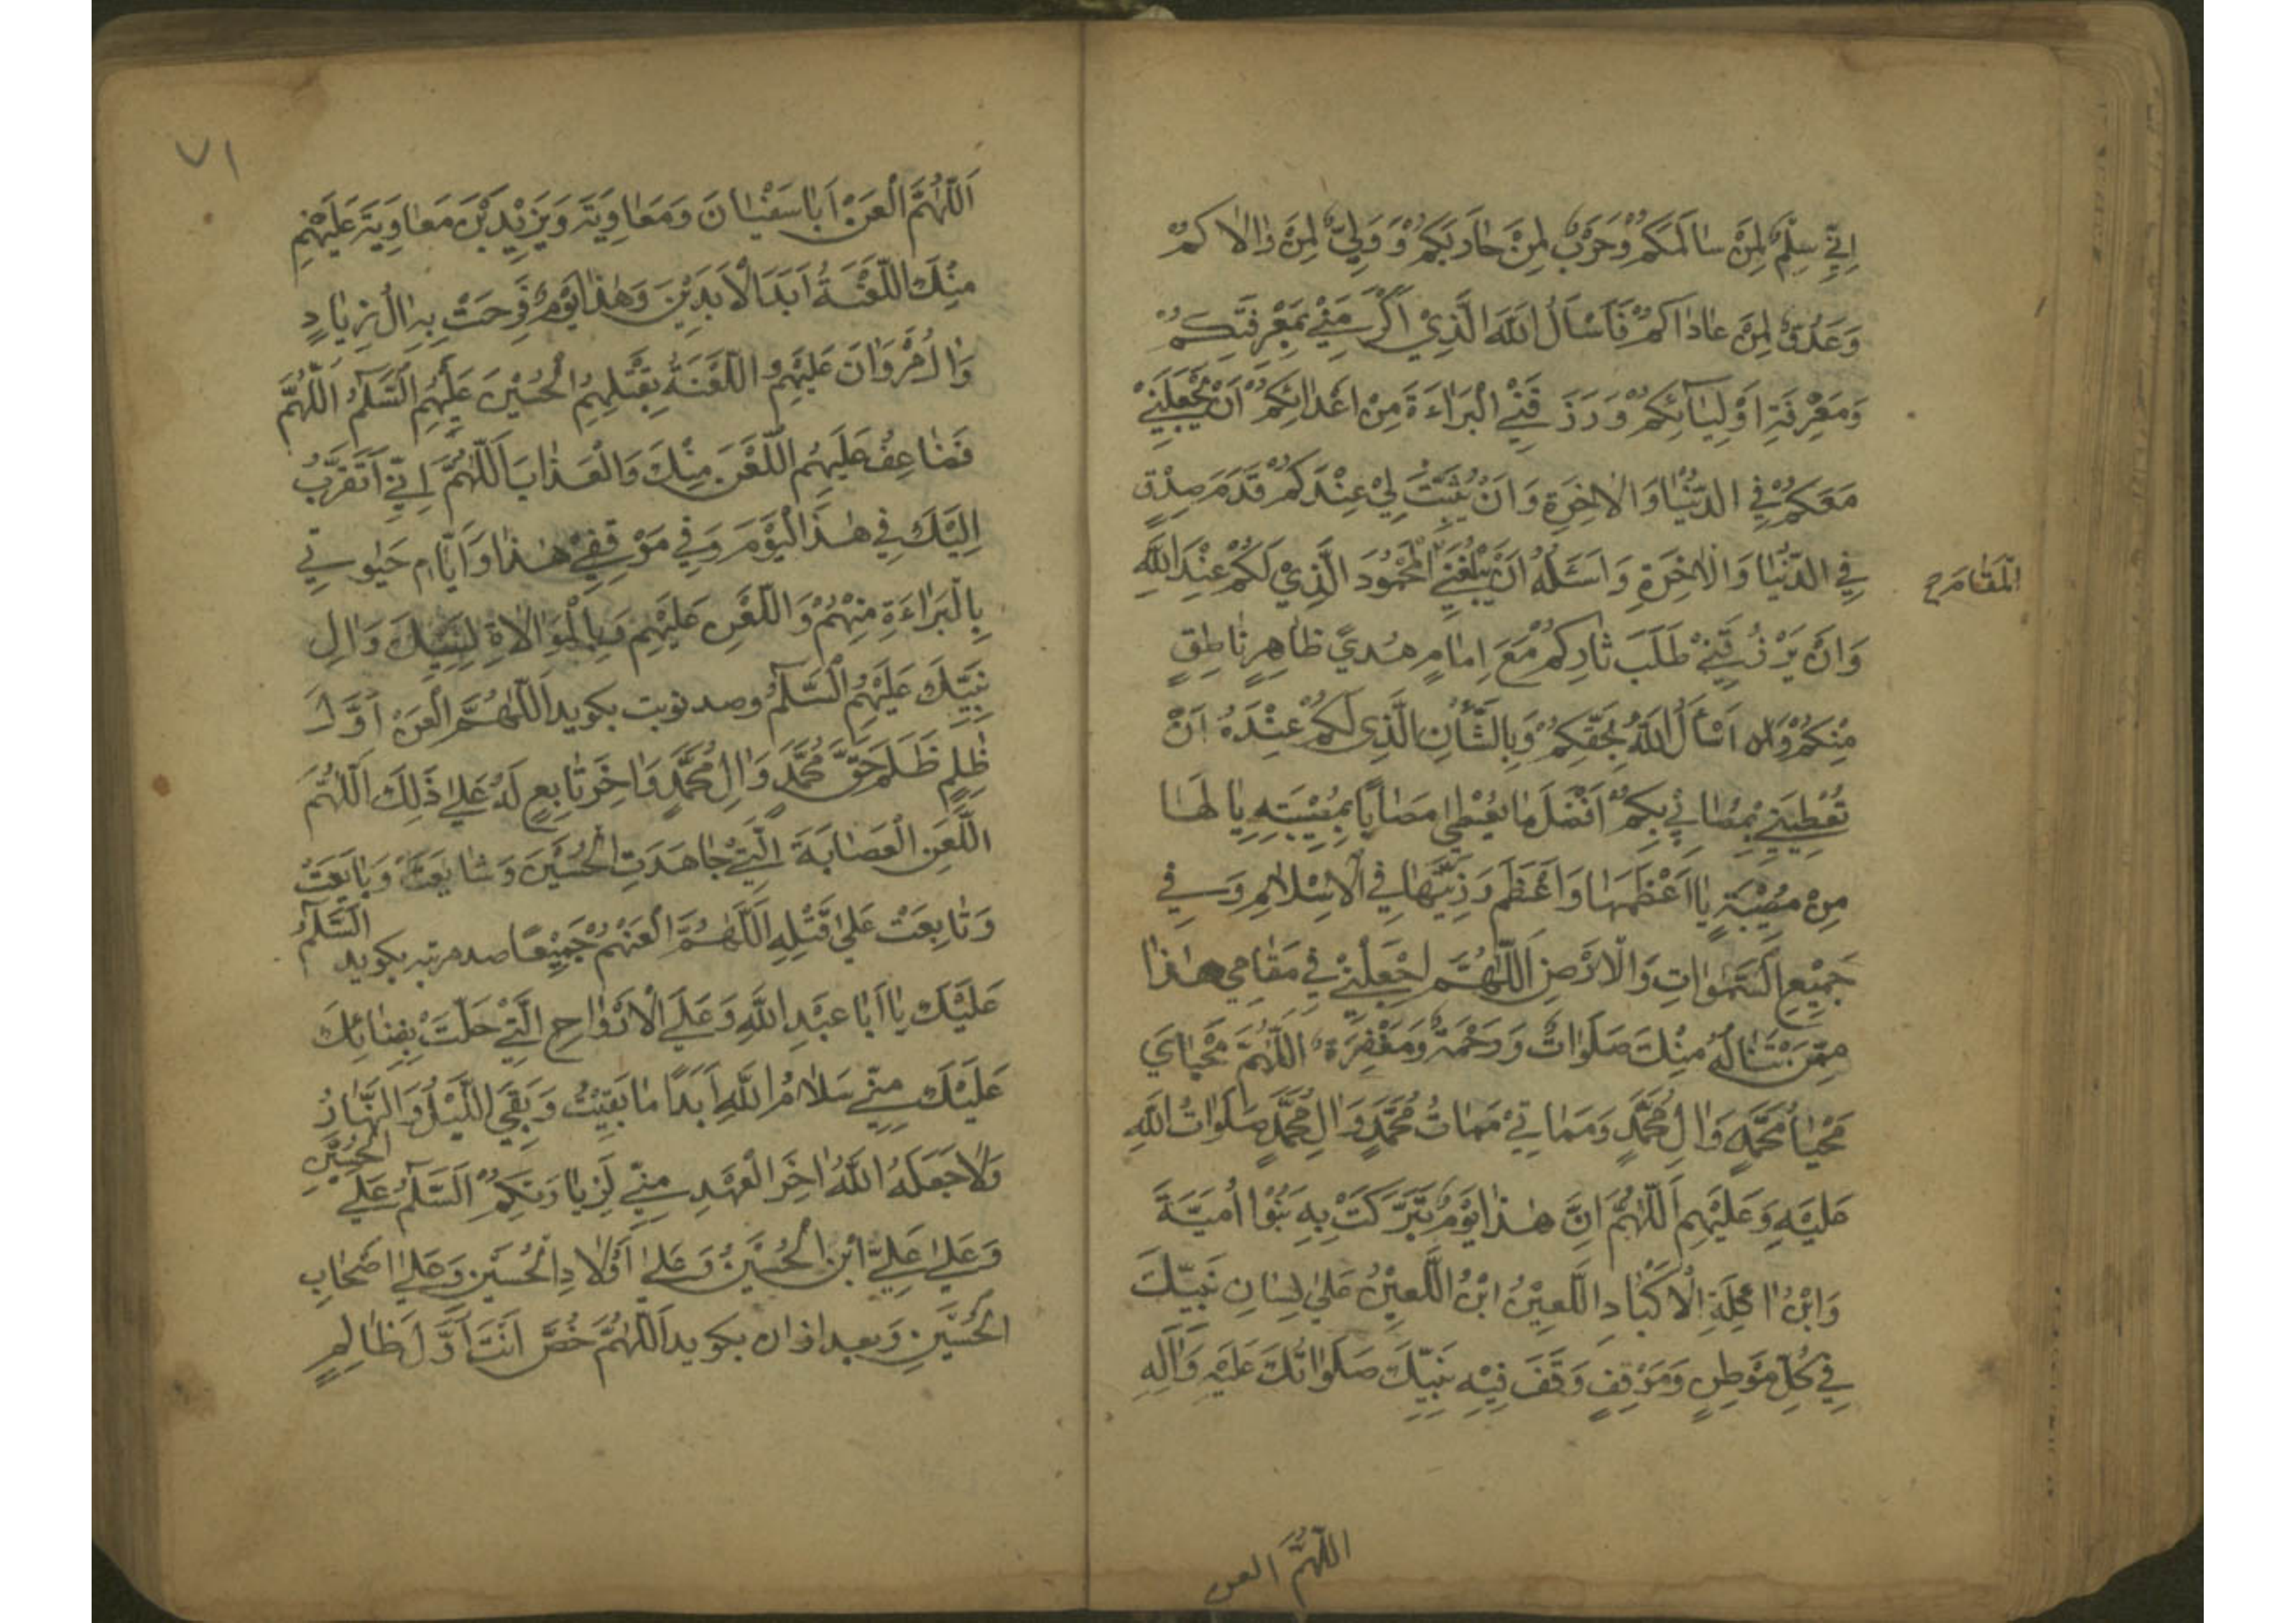 اِنِّي سِلْمٌ لِمَنْ سٰالَمَكُمْ وَحَرْبٌ لِمَنْ حٰارَبَكُمْ وَوَلِيٌّ لِمَنْ وٰالاٰكُمْ
وَعَدُوٌّ لِمَنْ عٰادٰاكُمْ فَاَسْاَلُ اللّٰهَ الَّذِيْ اَكْرَمَنِيْ بِمَعْرِفَتِكُمْ
وَمَعْرِفَةِ اَوْلِيٰآئِكُمْ وَرَزَقَنِيْ الْبَرٰاءَةَ مِنْ اَعْدٰائِكُمْ اَنْ يَجْعَلَنِيْ
مَعَكُمْ فِي الدُّنْيٰا وَالاٰخِرَةِ وَاَنْ يُثَبِّتَ لِيْ عِنْدَكُمْ قَدَمَ صِدْقٍ
فِي الدُّنْيٰا وَالاٰخِرَةِ وَاَسْئَلُهُ اَنْ يُبَلِّغَنِيْ الْمَحْمُودَ الَّذِيْ لَكُمْ عِنْدَ اللّٰهِ
الْمَقٰامَ ح
وَاَنْ يَرْزُقَنِيْ طَلَبَ ثٰارِكُمْ مَعَ اِمٰامٍ هُدىً ظٰاهِرٍ نٰاطِقٍ
مِنْكُمْ وَ اَسْأَلُ اللّٰهَ بِحَقِّكُمْ وَبِالشَّأْنِ الَّذِى لَكُمْ عِنْدَهُ اَنْ
تُعْطِيَنِيْ بِمُصٰابِيْ بِكُمْ اَفْضَلَ مٰا يُعْطٖى مُصٰابًا بِمُصِيْبَتِهِ يٰا لَهٰا
مِنْ مُصِيْبَةٍ يٰا اَعْظَمَهٰا وَاَعْظَمَ رَزِيَّتَهٰا فِي الْاِسْلاٰمِ وَفِي
جَمِيْعِ السَّمٰوٰاتِ وَالْاَرْضِ اَللّٰهُمَّ اجْعَلْنِيْ فِي مَقٰامِي هٰذٰا
مِمَّنْ تَنٰالُهُ مِنْكَ صَلَوٰاتٌ وَرَحْمَةٌ وَمَغْفِرَةٌ اَللّٰهُمَّ مَحْيٰايَ
مَحْيٰا مُحَمَّدٍ وَاٰلِ مُحَمَّدٍ وَمَمٰاتِيْ مَمٰاتُ مُحَمَّدٍ وَاٰلِ مُحَمَّدٍ صَلَوٰاتُ اللّٰهِ
عَلَيْهِ وَعَلَيْهِمْ اَللّٰهُمَّ اِنَّ هٰذٰا يَوْمٌ تَبَرَّكَتْ بِهِ بَنُوْا اُمَيَّةَ
وَابْنُ اٰكِلَةِ الْاَكْبٰادِ اللَّعِيْنُ ابْنُ اللَّعِيْنِ عَلىٰ لِسٰانِ نَبِيِّكَ
فِيْ كُلِّ مَوْطِنٍ وَمَوْقِفٍ وَقَفَ فِيْهِ نَبِيُّكَ صَلَوٰاتُكَ عَلَيْهِ وَاٰلِهِ
اللّٰهُمَّ العن
٧١
اَللّٰهُمَّ الْعَنْ اَبٰا سُفْيٰانَ وَمُعٰاوِيَةَ وَيَزِيْدَ بْنَ مُعٰاوِيَةَ عَلَيْهِمْ
مِنْكَ اللَّعْنَةُ اَبَدَ الْاٰبِدِيْنَ وَهٰذٰا يَوْمٌ فَرِحَتْ بِهِ اٰلُ زِيٰادٍ
وَاٰلُ مَرْوٰانَ عَلَيْهِمُ اللَّعْنَةُ بِقَتْلِهِمُ الْحُسَيْنَ عَلَيْهِمُ السَّلٰمُ اَللّٰهُمَّ
فَضٰاعِفْ عَلَيْهِمُ اللَّعْنَ مِنْكَ وَالْعَذٰابَ اَللّٰهُمَّ اِنِّيْ اَتَقَرَّبُ
اِلَيْكَ فِيْ هٰذَا الْيَوْمِ وَفِيْ مَوْقِفِيْ هٰذٰا وَاَيّٰامِ حَيٰوتِي
بِالْبَرٰاءَةِ مِنْهُمْ وَاللَّعْنِ عَلَيْهِمْ وَبِالْمُوٰالاٰةِ لِنَبِيِّكَ وَاٰلِ
نَبِيِّكَ عَلَيْهِمُ السَّلٰمُ وصد نوبت بکوید اَللّٰهُمَّ الْعَنْ اَوَّلَ
ظٰلِمٍ ظَلَمَ حَقَّ مُحَمَّدٍ وَاٰلِ مُحَمَّدٍ وَاٰخِرَ تٰابِعٍ لَهُ عَلىٰ ذٰلِكَ اَللّٰهُمَّ
اللَّعَنِ الْعِصٰابَةَ الَّتِيْ جٰاهَدَتِ الْحُسَيْنَ وَشٰايَعَتْ وَبٰايَعَتْ
وَتٰابَعَتْ عَلىٰ قَتْلِهِ اَللّٰهُمَّ الْعَنْهُمْ جَمِيْعًا صد مرتبه بکوید اَلسَّلٰمُ
عَلَيْكَ يٰا اَبٰا عَبْدِ اللّٰهِ وَعَلَى الْاَرْوٰاحِ الَّتِيْ حَلَّتْ بِفِنٰائِكَ
عَلَيْكَ مِنِّيْ سَلاٰمُ اللّٰهِ اَبَدًا مٰا بَقِيْتُ وَبَقِيَ اللَّيْلُ وَالنَّهٰارُ
وَلاٰ جَعَلَهُ اللّٰهُ اٰخِرَ الْعَهْدِ مِنِّيْ لِزِيٰارَتِكُمْ اَلسَّلٰمُ عَلَى الْحُسَيْنِ
وَعَلىٰ عَلِيِّ ابْنِ الْحُسَيْنِ وَعَلىٰ اَوْلاٰدِ الْحُسَيْنِ وَعَلىٰ اَصْحٰابِ
الْحُسَيْنِ وَبعد از ان بکوید اَللّٰهُمَّ خُصَّ اَنْتَ اَوَّلَ ظٰالِمٍ